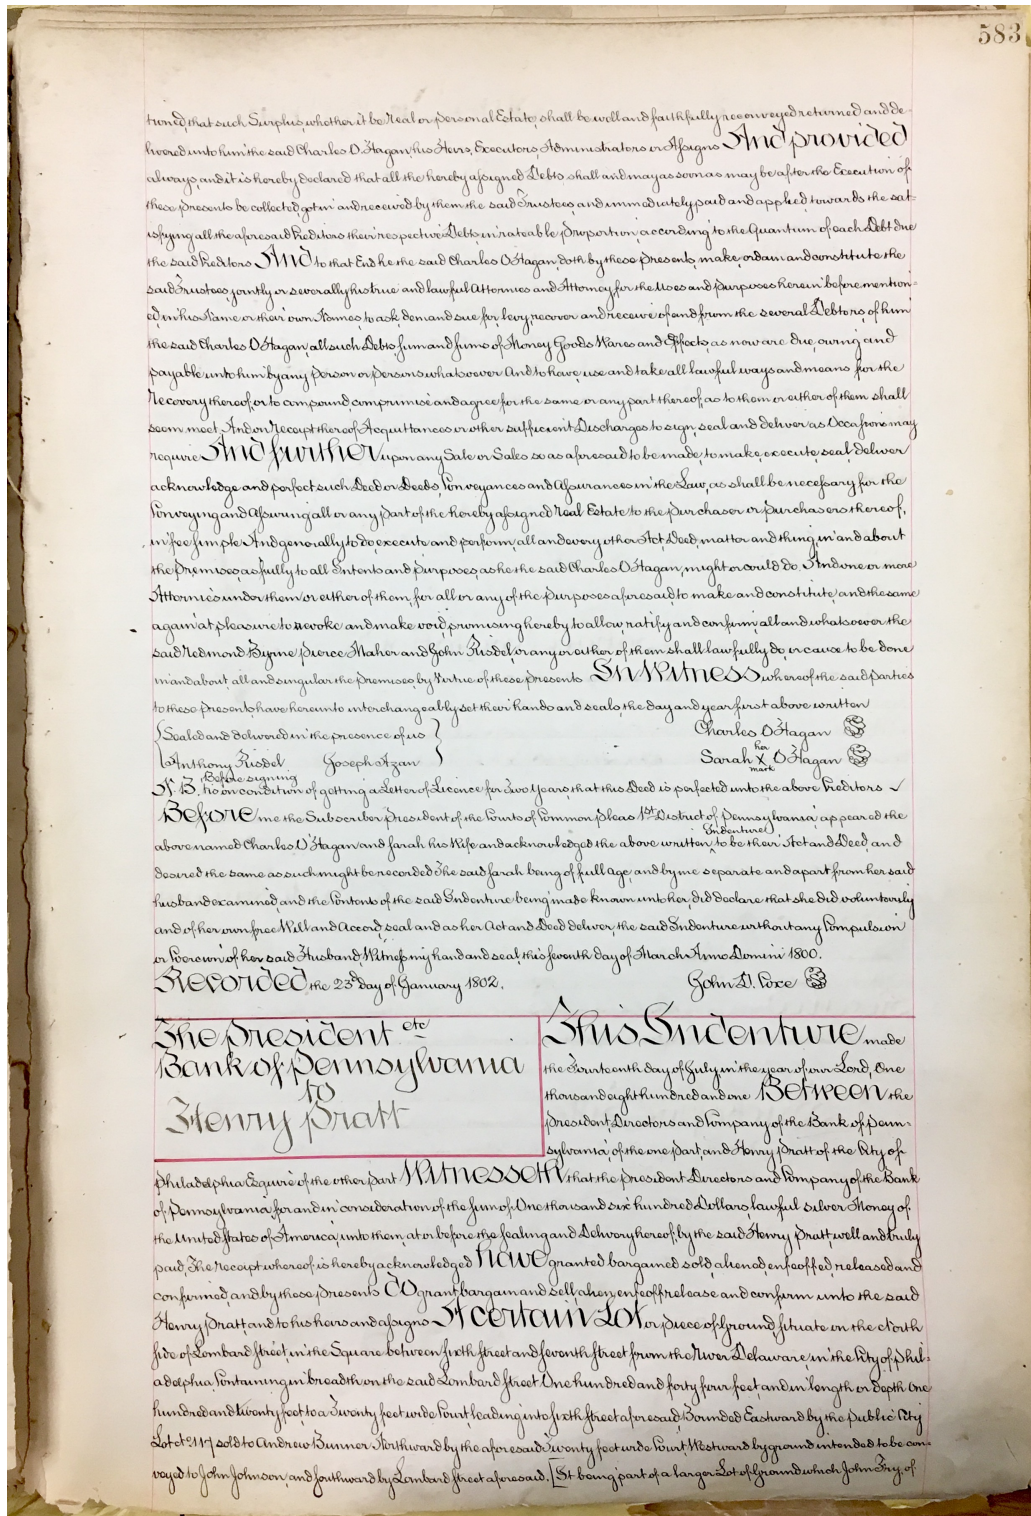 583
turned, that such Surplus, whether it be Real or personal Estate, shall be well and faithfully reconveyed returned and de-
livered unto him the said Charles O'Hagan, his Heirs, Executors, Administrators or Assigns And provided
always, and it is hereby declared that all the hereby assigned Debts shall and may as soon as may be after the Execution of
these presents be collected, got in and received by them the said Trustees, and immediately paid and applied towards the sat-
isfying all the aforesaid Creditors their respective Debts, in rateable proportion, according to the Quantum of each Debt due
the said Creditors And to that End he the said Charles O'Hagan, doth by these presents, make, ordain and constitute the
said Trustees, jointly or severally his true and lawful Attornies and Attorney for the Uses and purposes herein before mention-
ed, in his Name or their own Names, to ask, demand sue for, levy, recover and receive of and from the several Debtors, of him
the said Charles O'Hagan, all such Debts, sum and sums of Money Goods Wares and Effects, as now are due, owing and
payable unto him by any person or persons whatsoever And to have, use and take all lawful ways and means for the
Recovery thereof, or to compound, compromise and agree for the same or any part thereof, as to them or either of them shall
seem meet, And on Receipt thereof Acquittances or other sufficient Discharges to sign, seal and deliver as Occasions may
require And further upon any Sale or Sales so as aforesaid to be made, to make, execute, seal, deliver
acknowledge and perfect such Deed or Deeds, Conveyances and Assurances in the Law, as shall be necessary for the
Conveying and Assuring all or any part of the hereby assigned Real Estate to the purchaser or purchasers thereof,
in fee simple And generally to do, execute and perform, all and every other Act, Deed, matter and thing, in and about
the premises, as fully to all Intents and purposes, as he the said Charles O'Hagan, might or could do. And one or more
Attornies under them or either of them, for all or any of the purposes aforesaid to make and constitute, and the same
again at pleasure to revoke and make void, promising hereby to allow, ratify and confirm, all and whatsoever the
said Redmond Byrne pierce Maher and John Risdel, or any or either of them shall lawfully do, or cause to be done
in and about, all and singular the premises, by Virtue of these presents In Witness whereof the said parties
to these presents, have hereunto interchangeably set their hands and seals, the day and year first above written
Sealed and delivered in the presence of us Charles O'Hagan
Anthony Risdel Joseph Azan Sarah her X mark O'Hagan
Before signing
N.B. tis on condition of getting a Letter of Licence for Two Years, that this Deed is perfected unto the above Creditors
Before me the Subscriber president of the Courts of Common pleas 1st District of Pennsylvania, appeared the
above named Charles O'Hagan and Sarah his Wife and acknowledged the above written Indenture to be their Act and Deed, and
desired the same as such might be recorded The said Sarah being of full Age, and by me separate and apart from her said
husband examined, and the Contents of the said Indenture being made known unto her, did declare that she did voluntarily
and of her own free Will and Accord, seal and as her Act and Deed deliver, the said Indenture without any Compulsion
or Coercion of her said Husband, Witness my hand and seal, this seventh day of March Anno Domini 1800.
Recorded the 23d day of January 1802. John D. Coxe
The President etc
Bank of Pennsylvania
to
Henry Pratt
This Indenture made
the Fourteenth day of July in the year of our Lord, One
thousand eight hundred and one Between the
president, Directors and Company of the Bank of penn-
sylvania, of the one part, and Henry Pratt of the City of
philadelphia Esquire of the other part Witnesseth that the president Directors and Company of the Bank
of pennsylvania for and in consideration of the sum of One thousand six hundred Dollars, lawful silver Money of
the United States of America, unto them, at or before the sealing and Delivery hereof, by the said Henry Pratt, well and truly
paid, The receipt whereof is hereby acknowledged have granted bargained sold, aliened, enfeoffed, released and
confirmed, and by these presents Do grant, bargain and sell, alien, enfeoff release and confirm unto the said
Henry Pratt, and to his heirs and assigns A certain Lot or piece of Ground, situate on the North
side of Lombard street, in the Square between sixth street and seventh street from the River Delaware, in the City of phil-
adelphia. Containing in breadth on the said Lombard street One hundred and forty four feet, and in length or depth One
hundred and twenty feet, to a Twenty feet wide Court leading into sixth street aforesaid Bounded Eastward by the public City
Lot No 117 sold to Andrew Bunner Northward by the aforesaid Twenty feet wide Court, Westward by ground intended to be con-
veyed to John Johnson, and southward by Lombard street aforesaid. [It being part of a larger Lot of Ground which John Fry, of